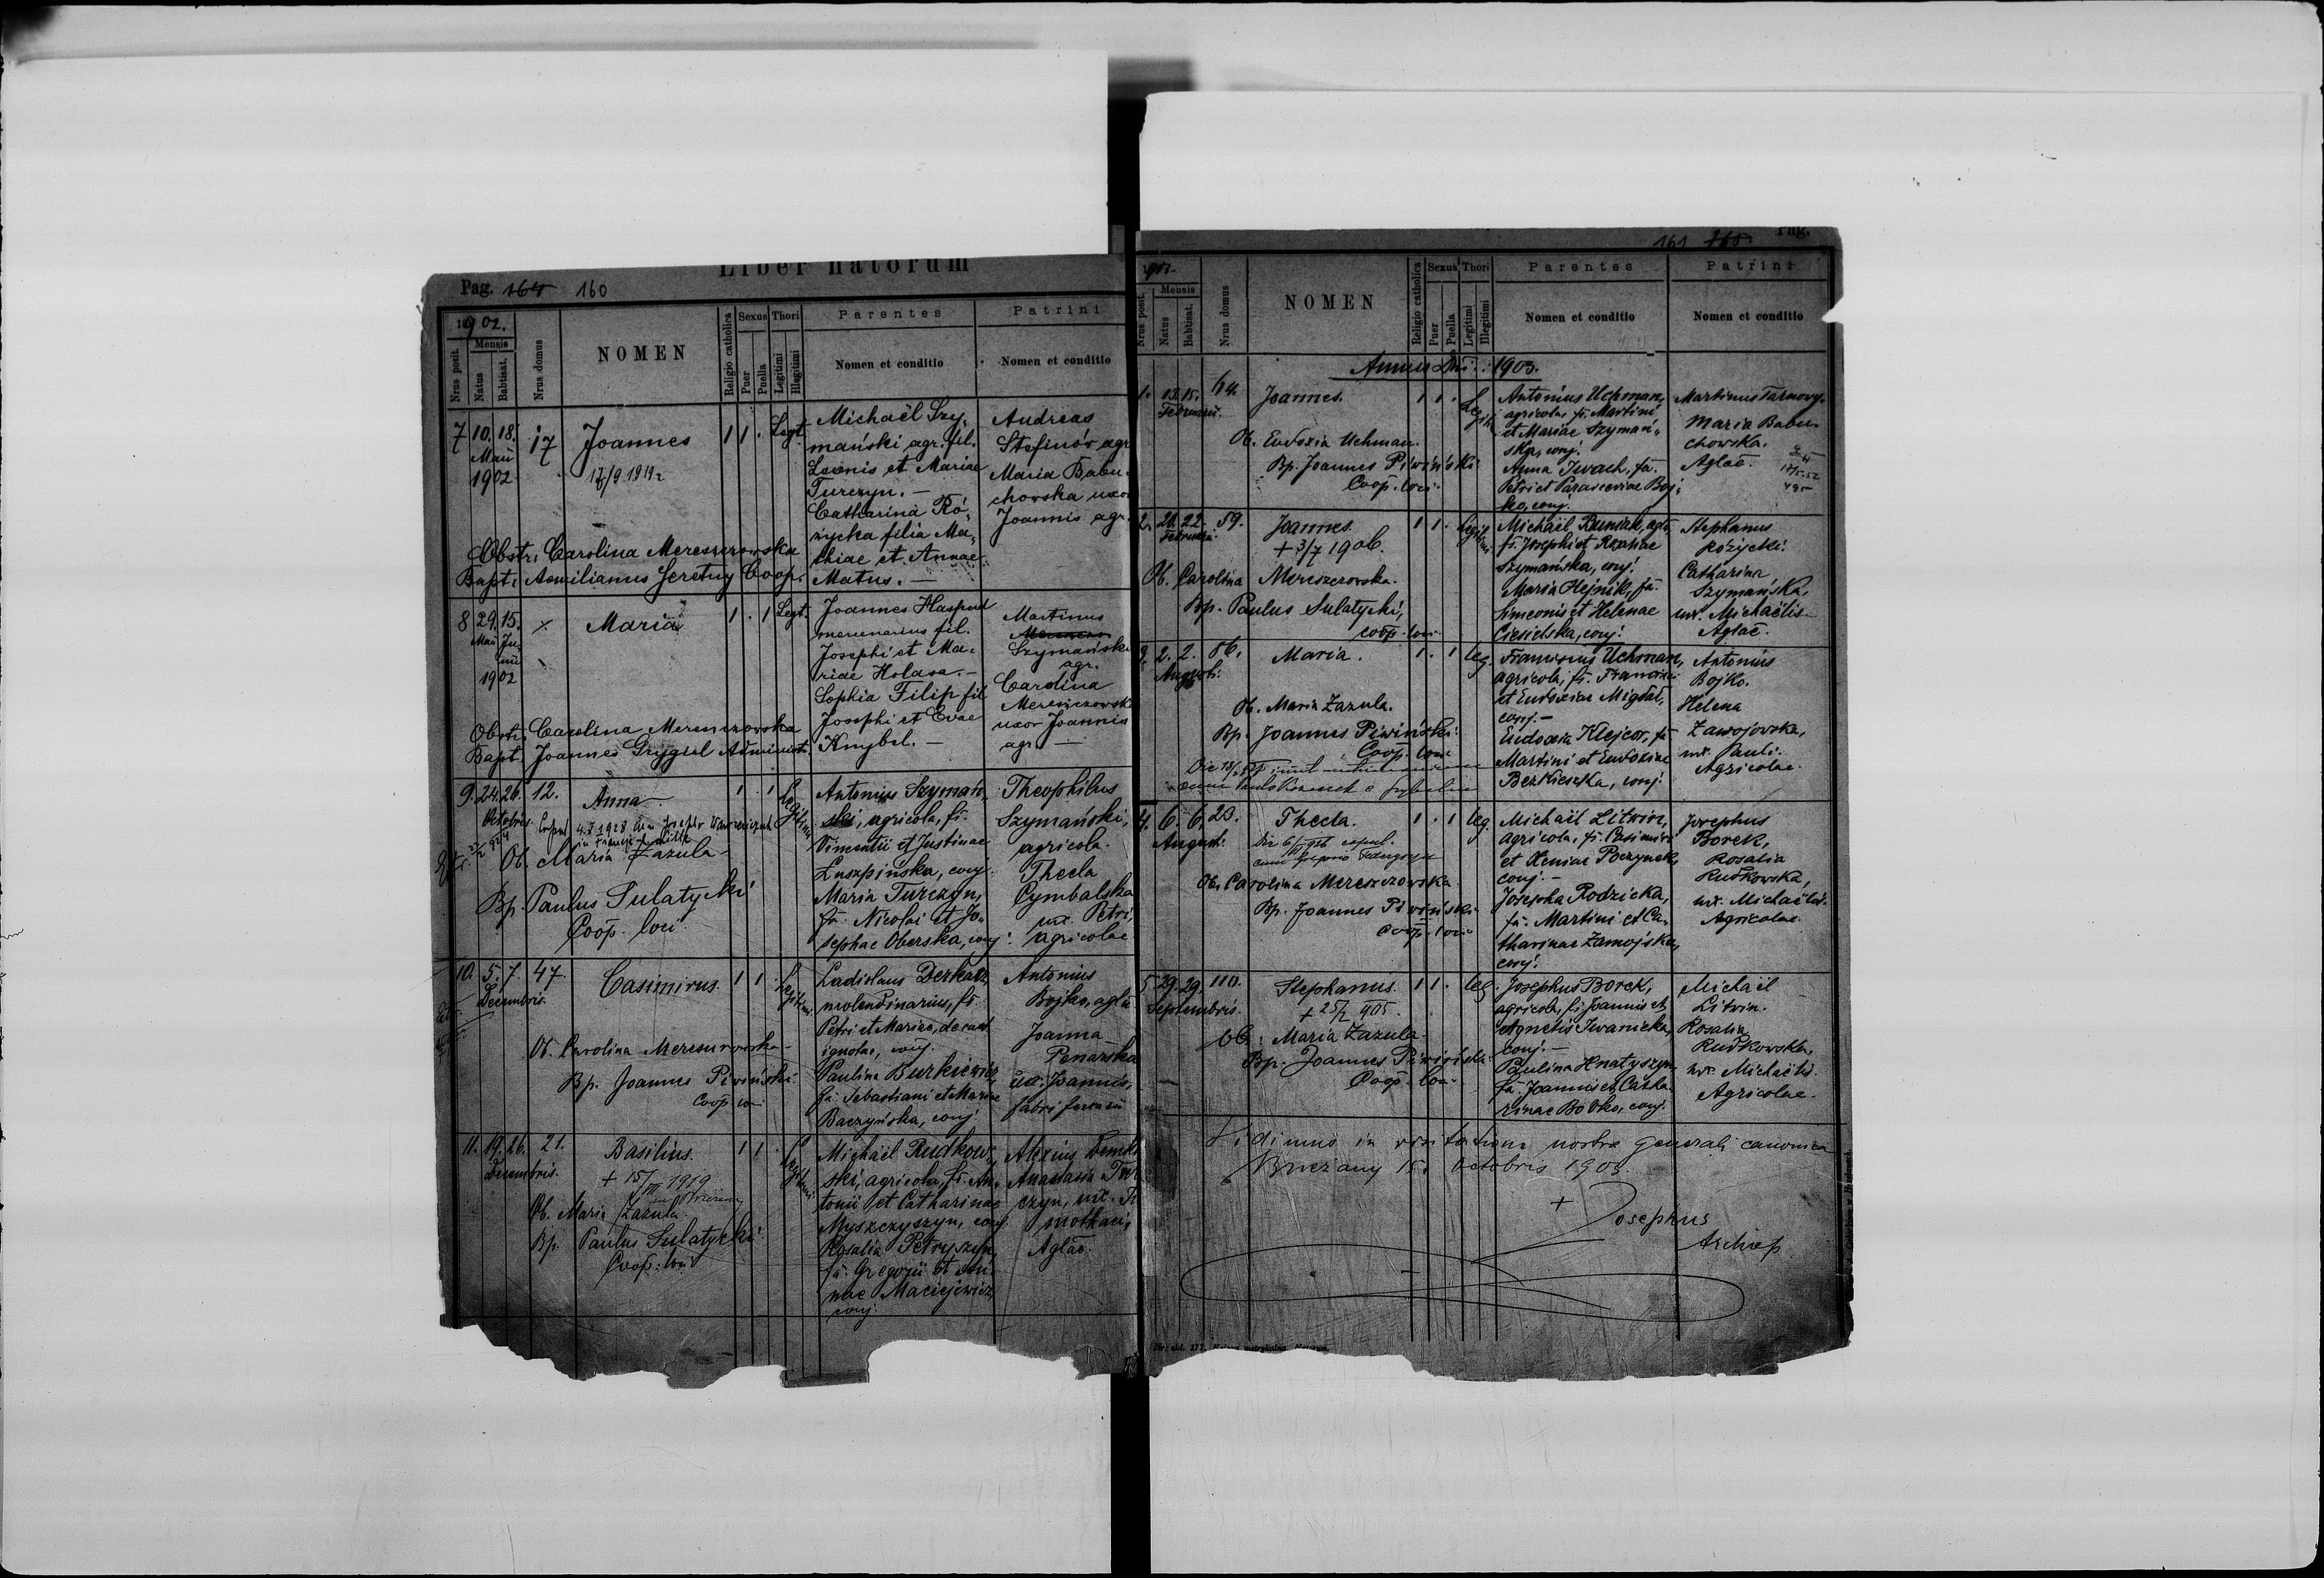 Liber natorum
Pag. 164 160
1902.
Nrus posit.
Mensis
Natus
Babtisat.
Nrus domus
NOMEN
Religio catholica
Sexus
Puer
Puella
Thori
Legitimi
Illegitimi
Parentes
Nomen et conditio
Patrini
Nomen et conditio
7 10. 18. 17 Joannes 1 1 . Legt.
Maii
1902
Michaël Szy-
mański agr. fil.
Leonis et Mariae
Turczyn. —
Catharina Ró-
życka filia Ma-
thiae et Annae
Matus. —
Andreas
Stefinór agr
Maria Babu-
chowska uxor
Joannis agr.
Obstr. Carolina Mereszczowska
Bapt. Aemilianus Seretny Coop.
8 29. 15. Maria 1 . 1 Legt.
Maii Ju-
nii
1902
Joannes Haspud
mercenarius fil.
Josephi et Ma-
riae Holasa. —
Sophia Filip fil
Josephi et Evae
Knybel. —
Martinus
Szymański
agr.
Carolina
Mereszczowska
uxor Joannis
agr. —
Obstr. Carolina Mereszczowska
Bapt. Joannes Grygiel Administr.
9. 24. 26. 12. Anna 1 . 1 Legitimi
Octobris
Ob. Maria Zazula
Bp. Paulus Sulatycki
Coop. loci
Antonius Szymań-
ski, agricola, fi.
Vincentii et Justinae
Luszpińska, conj.
Maria Turczyn,
fa. Nicolai et Jo-
sephae Oberska, conj.
Theophilus
Szymański,
agricola.
Thecla
Cymbalska
ux. Petri,
agricolae
10. 5. 7. 47. Casimirus 1 1 . Legitimi
Decembris.
Ob. Carolina Mereszczowska
Bp. Joannes Piwiński
Coop. loci
Ladislaus Derkacz,
molendinarius, fi.
Petri et Mariae, de caet.
ignotae, conj.
Paulina Burkiewicz,
fa. Sebastiani et Mariae
Baczyńska, conj.
Antonius
Bojko, agla
Joanna
Panarska
ux. Joannis,
fabri ferrarii
11. 19. 26. 21. Basilius. 1 1 . Legitimi
Decembris.
+ 15/III 1919
Ob. Maria Zazula
Bp. Paulus Sulatycki
Coop. loci
Michaël Rudkow-
ski, agricola, fi. An-
tonii et Catharinae
Myszczyszyn, conj.
Rosalia Petryszyn,
fa. Gregorii et An-
nae Maciejewicz,
conj.
Alexius
Anastasia Tur-
czyn, ux. Ti-
mothaei,
Aglae.
161 160 Pag.
1902.
Nrus posit.
Mensis
Natus
Babtisat.
Nrus domus
NOMEN
Religio catholica
Sexus
Puer
Puella
Thori
Legitimi
Illegitimi
Parentes
Nomen et conditio
Patrini
Nomen et conditio
Annus Dni: 1903.
1. 13. 15. 64. Joannes. 1 1 . Legiti.
Februarii.
Ob. Eudoxia Uchman.
Bp. Joannes Piwiński
Coop. loci
Antonius Uchman,
agricola, fi. Martini
et Mariae Szymań-
ska, conj.
Anna Iwach, fa.
Petri et Parasceviae Boj-
ko, conj.
Martinus Tarnowy.
Maria Babu-
chowska.
Aglae.
2. 21. 22. 59. Joannes. 1 1 . Legitimi
Februarii.
+ 3/7 1906.
Ob. Carolina Mereszczowska.
Bp. Paulus Sulatycki,
coop. loci
Michaël Buniak, agla,
fi. Josephi et Roxanae
Szymańska, conj.
Maria Hejnik, fa.
Simeonis et Helenae
Ciesielska, conj.
Stephanus
Różycki.
Catharina
Szymańska,
ux. Michaëlis
Aglae.
3. 2. 2. 86. Maria. 1 . 1 leg.
Augusti.
Ob. Maria Zazula.
Bp. Joannes Piwiński
Coop. loci
Franciscus Uchman,
agricola, fi. Francisci
et Eudoxiae Migdał,
conj. —
Eudoxia Klejcor, fa
Martini et Eudoxiae
conj.
Antonius
Bojko.
Helena
Zawojowska,
ux. Pauli.
Agricolae.
4. 6. 6. 23. Thecla. 1 . 1 leg.
Augusti.
Ob. Carolina Mereszczowska
Bp. Joannes Piwiński
Coop. loci
Michaël Litwin,
agricola, fi. Casimiri
et Xeniae Poczynek,
conj. —
Josepha Rodzicka,
fa. Martini et Ca-
tharinae Zamojska,
conj.
Josephus
Borek,
Rosalia
Rudkowska,
ux. Michaëlis.
Agricolae.
5. 29. 29. 110. Stephanus. 1 1 . leg.
Septembris.
+ 25/2 905.
Ob. Maria Zazula
Bp. Joannes Piwiński
Coop. loci
Josephus Borek,
agricola, fi. Joannis et
Agnetis Iwanicka,
conj. —
Paulina Hnatyszyn
fa. Joannis et Catha-
rinae Bodko, conj.
Michaël
Litwin.
Rosalia
Rudkowska,
ux. Michaëlis.
Agricolae.
Vidimus in visitatione nostra generali canonica
Brzeżany 15. Octobris 1903.
+ Josephus
Archiep